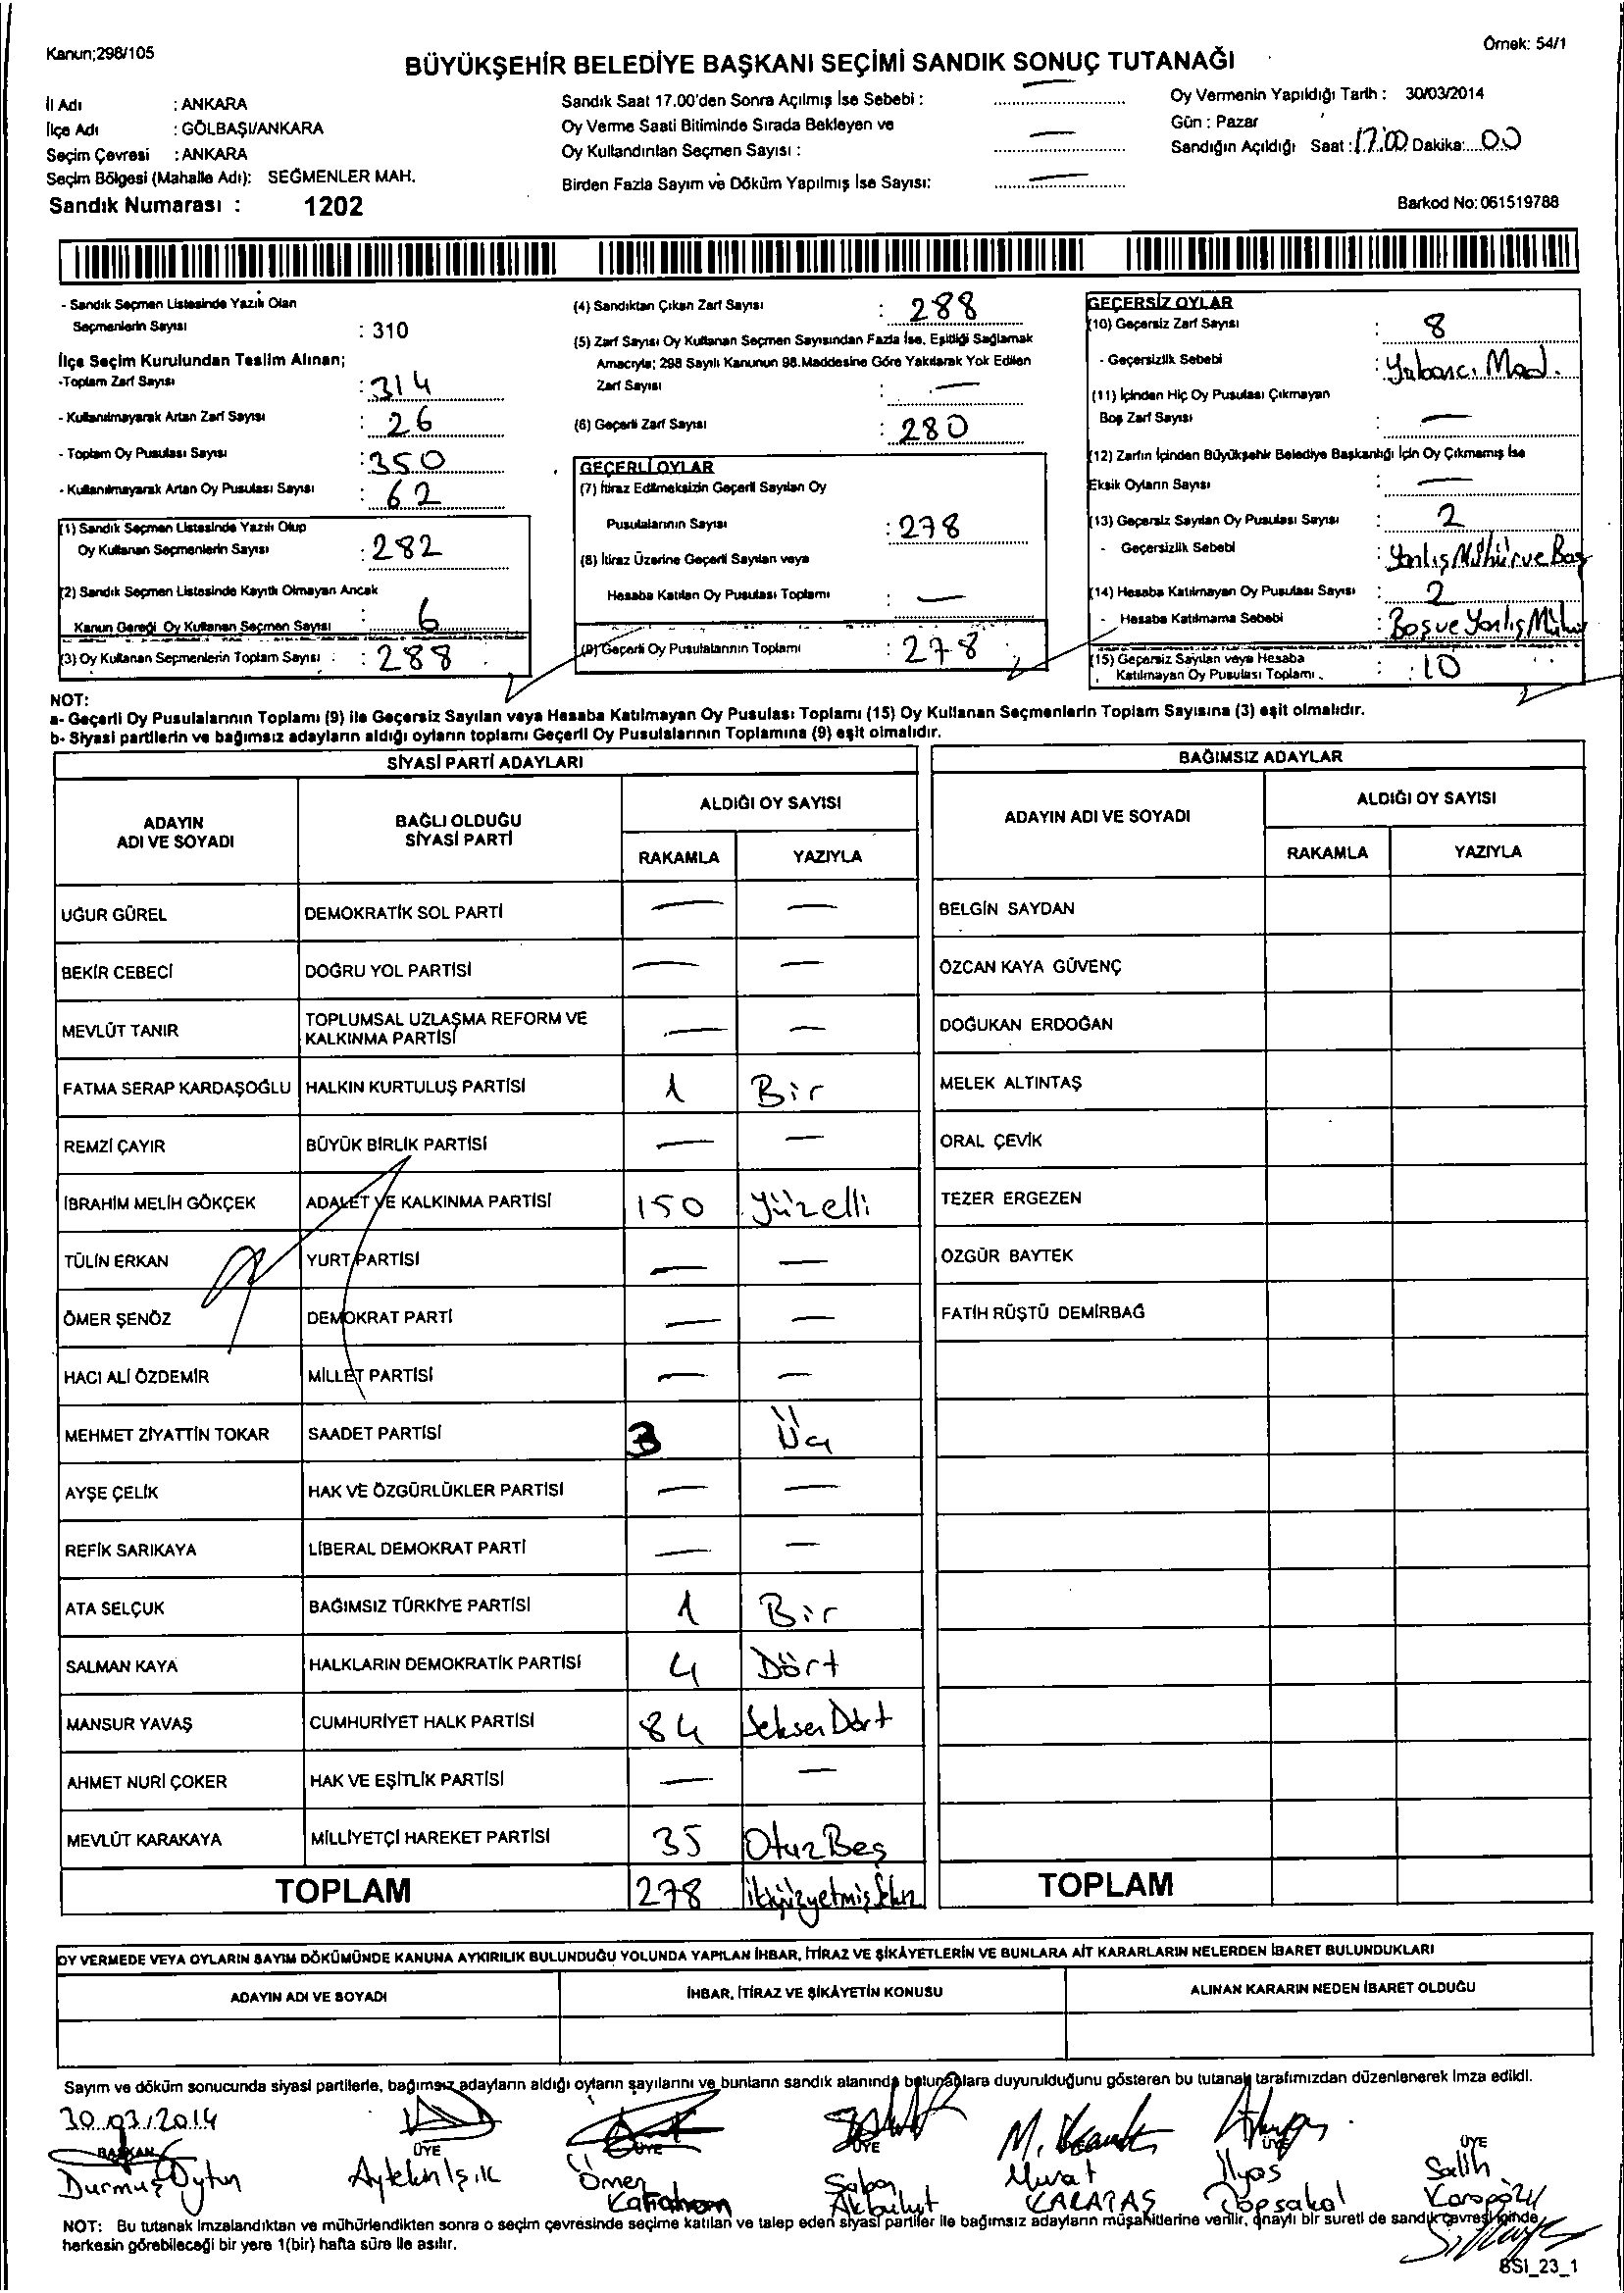 Kanun;298/105
Örnek: 54/1
BÜYÜKŞEHİR BELEDİYE BAŞKANI SEÇİMİ SANDIK SONUÇ TUTANAĞI
İl Adı : ANKARA
İlçe Adı : GÖLBAŞI/ANKARA
Seçim Çevresi : ANKARA
Seçim Bölgesi (Mahalle Adı): SEĞMENLER MAH.
Sandık Numarası : 1202
Sandık Saat 17.00'den Sonra Açılmış İse Sebebi : —
Oy Verme Saati Bitiminde Sırada Bekleyen ve
Oy Kullandırılan Seçmen Sayısı : —
Birden Fazla Sayım ve Döküm Yapılmış İse Sayısı: —
Oy Vermenin Yapıldığı Tarih : 30/03/2014
Gün : Pazar
Sandığın Açıldığı Saat : 17.00 Dakika: 00
Barkod No: 061519788
- Sandık Seçmen Listesinde Yazılı Olan
Seçmenlerin Sayısı : 310
İlçe Seçim Kurulundan Teslim Alınan;
-Toplam Zarf Sayısı : 314
- Kullanılmayarak Artan Zarf Sayısı : 26
- Toplam Oy Pusulası Sayısı : 350
- Kullanılmayarak Artan Oy Pusulası Sayısı : 62
(1) Sandık Seçmen Listesinde Yazılı Olup
Oy Kullanan Seçmenlerin Sayısı : 282
(2) Sandık Seçmen Listesinde Kayıtlı Olmayan Ancak
Kanun Gereği Oy Kullanan Seçmen Sayısı : 6
(3) Oy Kullanan Seçmenlerin Toplam Sayısı : 288
(4) Sandıktan Çıkan Zarf Sayısı : 288
(5) Zarf Sayısı Oy Kullanan Seçmen Sayısından Fazla İse, Eşitliği Sağlamak
Amacıyla; 298 Sayılı Kanunun 98.Maddesine Göre Yakılarak Yok Edilen
Zarf Sayısı : —
(6) Geçerli Zarf Sayısı : 280
GEÇERLİ OYLAR
(7) İtiraz Edilmeksizin Geçerli Sayılan Oy
Pusulalarının Sayısı : 278
(8) İtiraz Üzerine Geçerli Sayılan veya
Hesaba Katılan Oy Pusulası Toplamı : —
(9) Geçerli Oy Pusulalarının Toplamı : 278
GEÇERSİZ OYLAR
(10) Geçersiz Zarf Sayısı : 8
- Geçersizlik Sebebi : Yabancı Mad.
(11) İçinden Hiç Oy Pusulası Çıkmayan
Boş Zarf Sayısı : —
(12) Zarfın İçinden Büyükşehir Belediye Başkanlığı İçin Oy Çıkmamış İse
Eksik Oyların Sayısı : —
(13) Geçersiz Sayılan Oy Pusulası Sayısı : 2
- Geçersizlik Sebebi : Yanlış Mühür ve Boş
(14) Hesaba Katılmayan Oy Pusulası Sayısı : 2
- Hesaba Katılmama Sebebi : Boş ve Yanlış Mühür
(15) Geçersiz Sayılan veya Hesaba
Katılmayan Oy Pusulası Toplamı : 10
NOT:
a- Geçerli Oy Pusulalarının Toplamı (9) ile Geçersiz Sayılan veya Hesaba Katılmayan Oy Pusulası Toplamı (15) Oy Kullanan Seçmenlerin Toplam Sayısına (3) eşit olmalıdır.
b- Siyasi partilerin ve bağımsız adayların aldığı oyların toplamı Geçerli Oy Pusulalarının Toplamına (9) eşit olmalıdır.
SİYASİ PARTİ ADAYLARI
ADAYIN ADI VE SOYADI
BAĞLI OLDUĞU SİYASİ PARTİ
ALDIĞI OY SAYISI
RAKAMLA YAZIYLA
UĞUR GÜREL DEMOKRATİK SOL PARTİ — —
BEKİR CEBECİ DOĞRU YOL PARTİSİ — —
MEVLÜT TANIR TOPLUMSAL UZLAŞMA REFORM VE KALKINMA PARTİSİ — —
FATMA SERAP KARDAŞOĞLU HALKIN KURTULUŞ PARTİSİ 1 Bir
REMZİ ÇAYIR BÜYÜK BİRLİK PARTİSİ — —
İBRAHİM MELİH GÖKÇEK ADALET VE KALKINMA PARTİSİ 150 Yüzelli
TÜLİN ERKAN YURT PARTİSİ — —
ÖMER ŞENÖZ DEMOKRAT PARTİ — —
HACI ALİ ÖZDEMİR MİLLET PARTİSİ — —
MEHMET ZİYATTİN TOKAR SAADET PARTİSİ 3 Üç
AYŞE ÇELİK HAK VE ÖZGÜRLÜKLER PARTİSİ — —
REFİK SARIKAYA LİBERAL DEMOKRAT PARTİ — —
ATA SELÇUK BAĞIMSIZ TÜRKİYE PARTİSİ 1 Bir
SALMAN KAYA HALKLARIN DEMOKRATİK PARTİSİ 4 Dört
MANSUR YAVAŞ CUMHURİYET HALK PARTİSİ 84 Seksen Dört
AHMET NURİ ÇOKER HAK VE EŞİTLİK PARTİSİ — —
MEVLÜT KARAKAYA MİLLİYETÇİ HAREKET PARTİSİ 35 Otuz Beş
TOPLAM 278 ikiyüzyetmiş Sekiz
BAĞIMSIZ ADAYLAR
ADAYIN ADI VE SOYADI
ALDIĞI OY SAYISI
RAKAMLA YAZIYLA
BELGİN SAYDAN
ÖZCAN KAYA GÜVENÇ
DOĞUKAN ERDOĞAN
MELEK ALTINTAŞ
ORAL ÇEVİK
TEZER ERGEZEN
ÖZGÜR BAYTEK
FATİH RÜŞTÜ DEMİRBAĞ
TOPLAM
OY VERMEDE VEYA OYLARIN SAYIM DÖKÜMÜNDE KANUNA AYKIRILIK BULUNDUĞU YOLUNDA YAPILAN İHBAR, İTİRAZ VE ŞİKÂYETLERİN VE BUNLARA AİT KARARLARIN NELERDEN İBARET BULUNDUKLARI
ADAYIN ADI VE SOYADI
İHBAR, İTİRAZ VE ŞİKÂYETİN KONUSU
ALINAN KARARIN NEDEN İBARET OLDUĞU
Sayım ve döküm sonucunda siyasi partilerle, bağımsız adayların aldığı oyların sayılarını ve bunların sandık alanında bulunanlara duyurulduğunu gösteren bu tutanak tarafımızdan düzenlenerek imza edildi.
30.03.2014
BAŞKAN ÜYE ÜYE ÜYE ÜYE ÜYE
Durmuş Oytun
Aytekin Işık
Ömer
Şaban Akbulut
M.
Murat KARATAŞ
İlyas Topsakal
Salih Karagözlü
NOT: Bu tutanak imzalandıktan ve mühürlendikten sonra o seçim çevresinde seçime katılan ve talep eden siyasi partiler ile bağımsız adayların müşahitlerine verilir, onaylı bir sureti de sandık çevresi içinde
herkesin görebileceği bir yere 1(bir) hafta süre ile asılır.
SSI_23_1